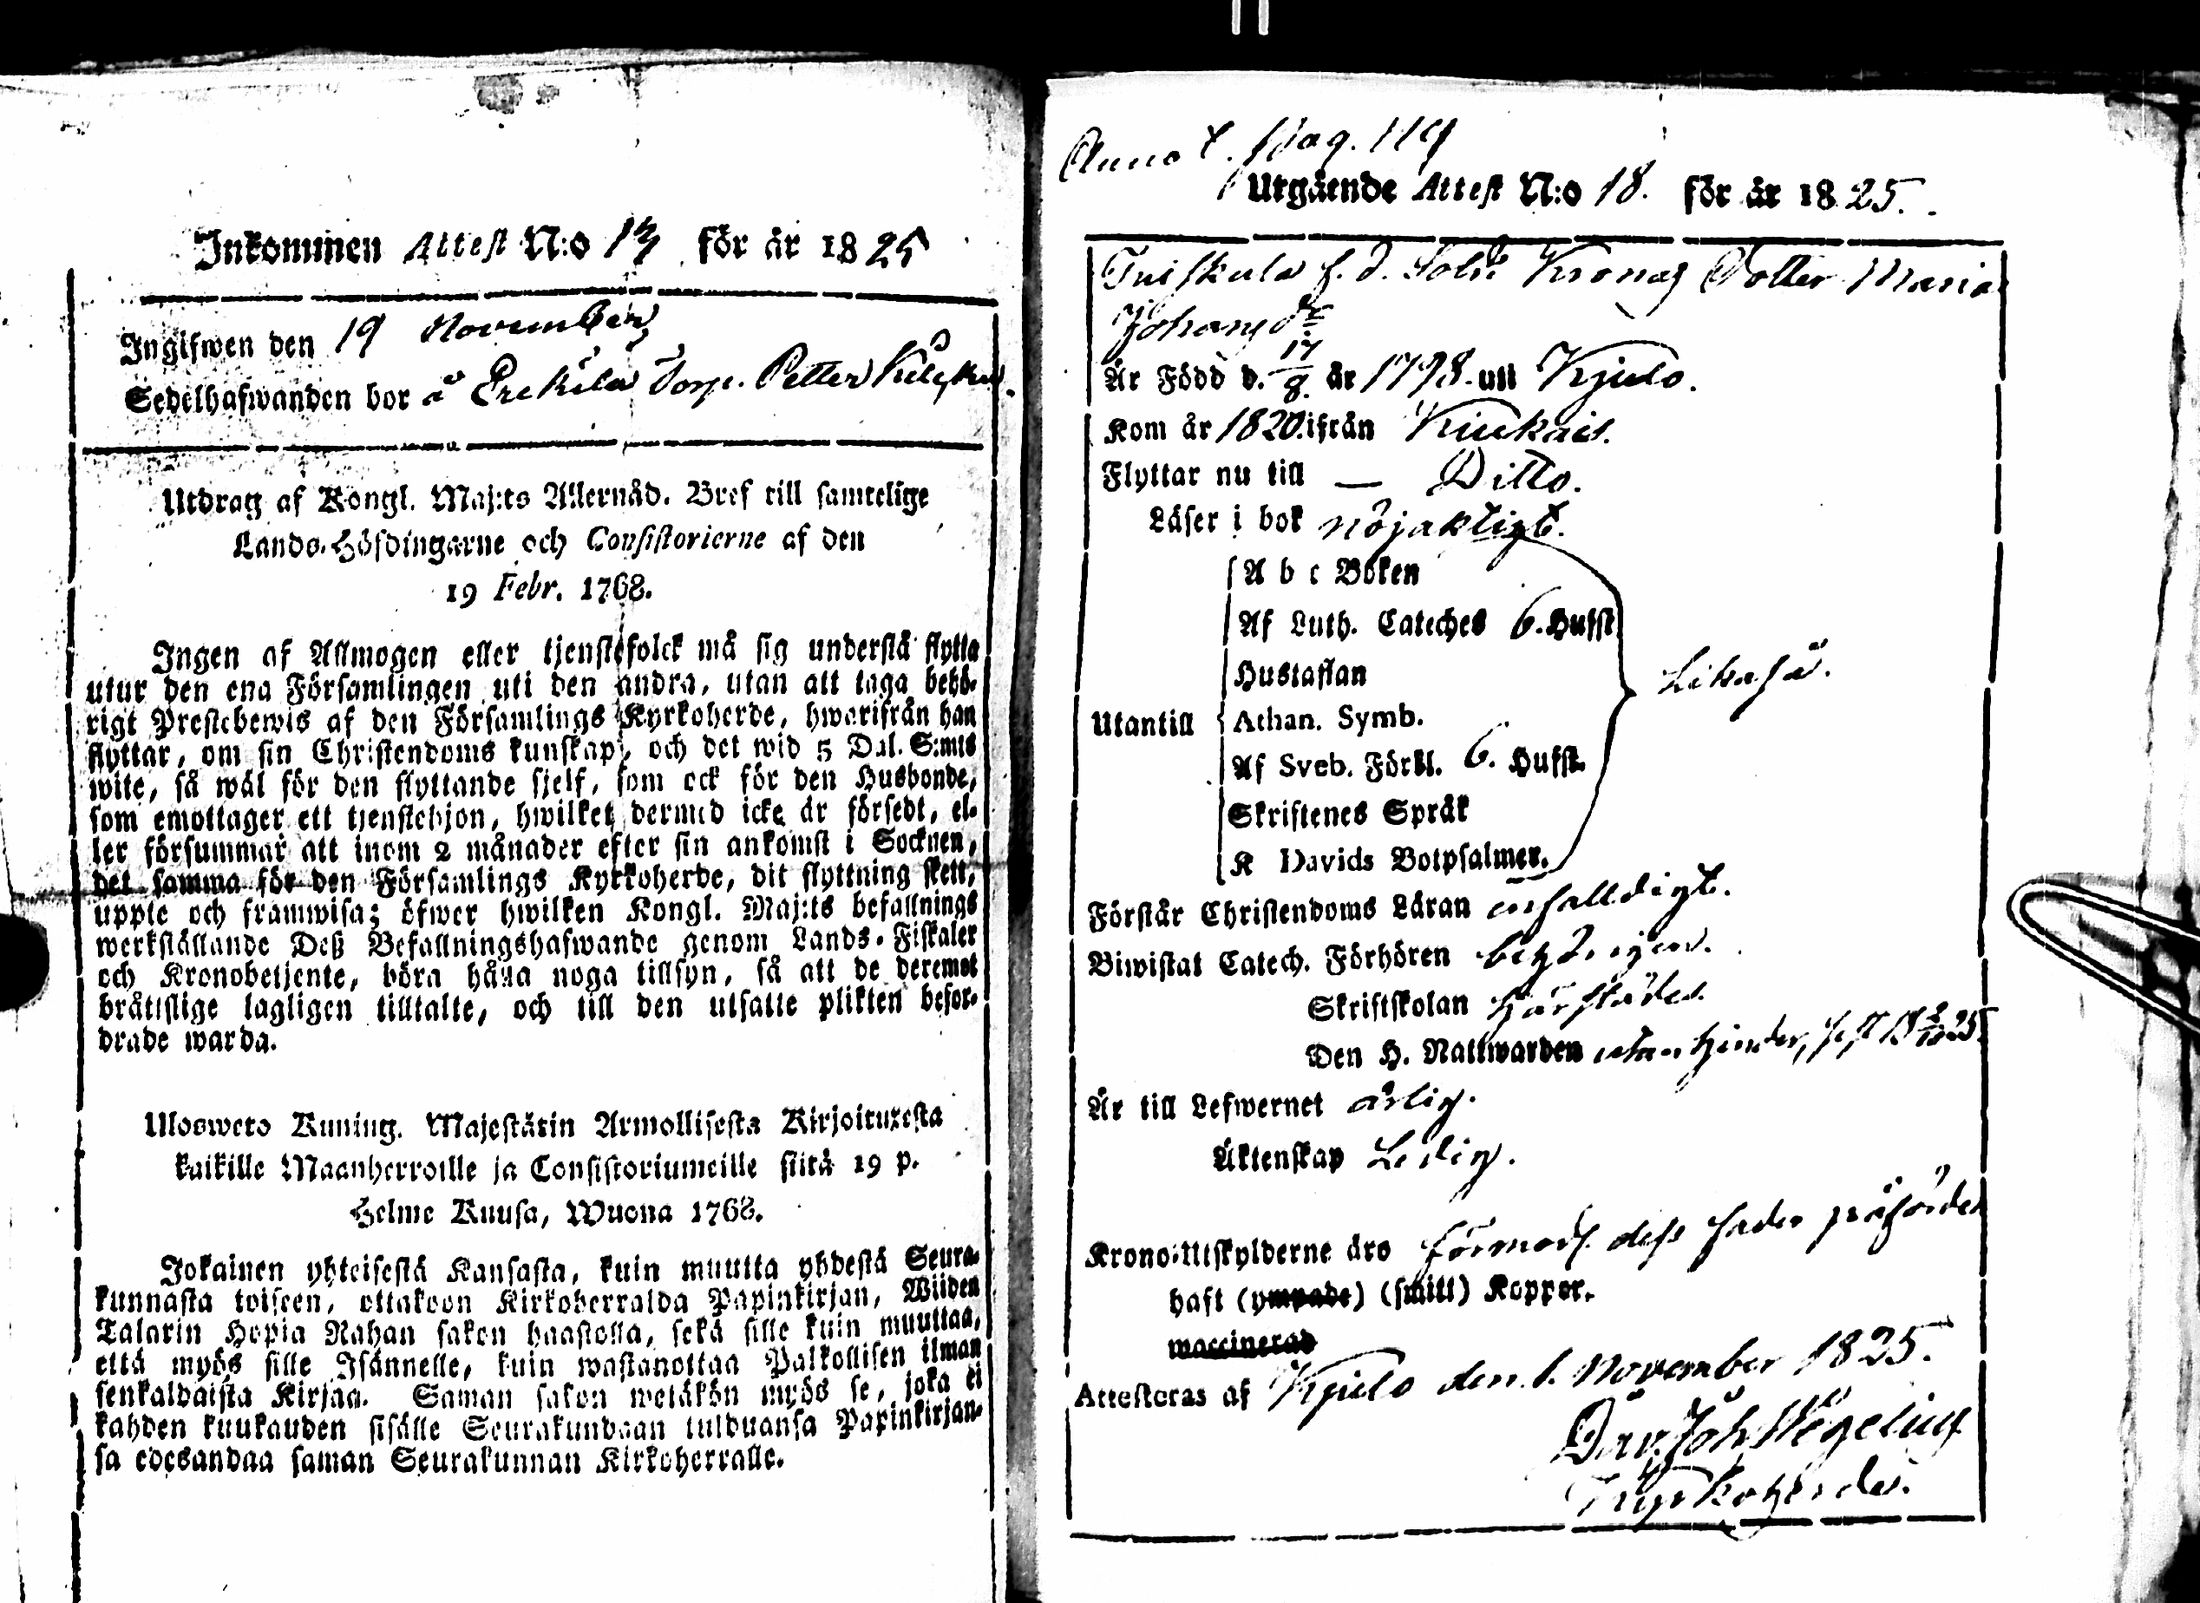 Inkommen Attest N:o 13 för år 1825
Ingifwen den 19 November
Sedelhafwanden bor å Erckilä Torp. Petter
Utdrag af Kongl. Maj:ts Allernåd. Bref till samtelige
Lands-Höfdingarne och Consistorierne af den
19 Febr. 1768.
Ingen af Allmogen eller tjenstefolck må sig understå flytta
utur den ena Församlingen uti den andra, utan att taga behö-
rigt Prestebewis af den Församlings Kyrkoherde, hwarifrån han
flyttar, om sin Christendoms kunskap, och det wid 5 Dal. S:mts
wite, så wäl för den flyttande sjelf, som ock för den Husbonde,
som emottager ett tjenstehjon, hwilket dermed icke är försedt, el-
ler försummar att inom 2 månader efter sin ankomst i Socknen,
det samma för den Församlings Kyrkoherde, dit flyttning skett,
uppte och framwisa; öfwer hwilken Kongl. Maj:ts befallnings
werkställande Deß Befallningshafwande genom Lands-Fiskaler
och Kronobetjente, böra hålla noga tillsyn, så att de deremot
bråttslige lagligen tilltalte, och till den utsatte plikten befor-
drade warda.
Ulosweto Kuning. Majestätin Armollisesta Kirjoituxesta
kaikille Maanherroille ja Consistoriumeille siitä 19 p.
Helme Kuusa, Wuona 1768.
Jokainen yhteisestä Kansasta, kuin muutta yhdestä Seura-
kunnasta toiseen, ottakoon Kirkoherralda Papinkirjan, Wiiden
Talarin Hopia Rahan sakon haastolla, sekä sille kuin muuttaa,
että myös sille Isännelle, kuin wastanottaa Palkollisen ilman
senkaldaista Kirjaa. Saman sakon wetäkön myös se, joka ei
kahden kuukauden sisälle Seurakundaan tulduansa Papinkirjan-
sa edesandaa saman Seurakunnan Kirkoherralle.
Annot. pag. 119
Utgående Attest N:o 18. för år 1825.
f. d. Sold. Dotter Maria
Johansdr.
Är Född d. 17/8. år 1798. uti Kjulo.
Kom år 1820. ifrån Kiukais.
Flyttar nu till — Ditto.
Läser i bok nöjaktigt.
A b c Boken
Af Luth. Cateches 6. Hufst
Hustaflan
Utantill Athan. Symb. Likaså.
Af Sveb. Förkl. 6. Hufst.
Skriftenes Språk
K Davids Botpsalmer.
Förstår Christendoms Läran enfalldigt.
Biwistat Catech. Förhören
Skriftskolan härstädes.
Den H. Nattwarden utan hinder, sist d 2/10 25.
Är till Lefwernet ärlig.
Äktenskap Ledig.
Krono-Utskylderne äro förmod. dess fader påförde
haft (ympade) (smitt) Koppor.
waccinerad
Attesteras af Kjulo den 1. November 1825.
Dav. Joh. Wegelius
Kyrkoherde.